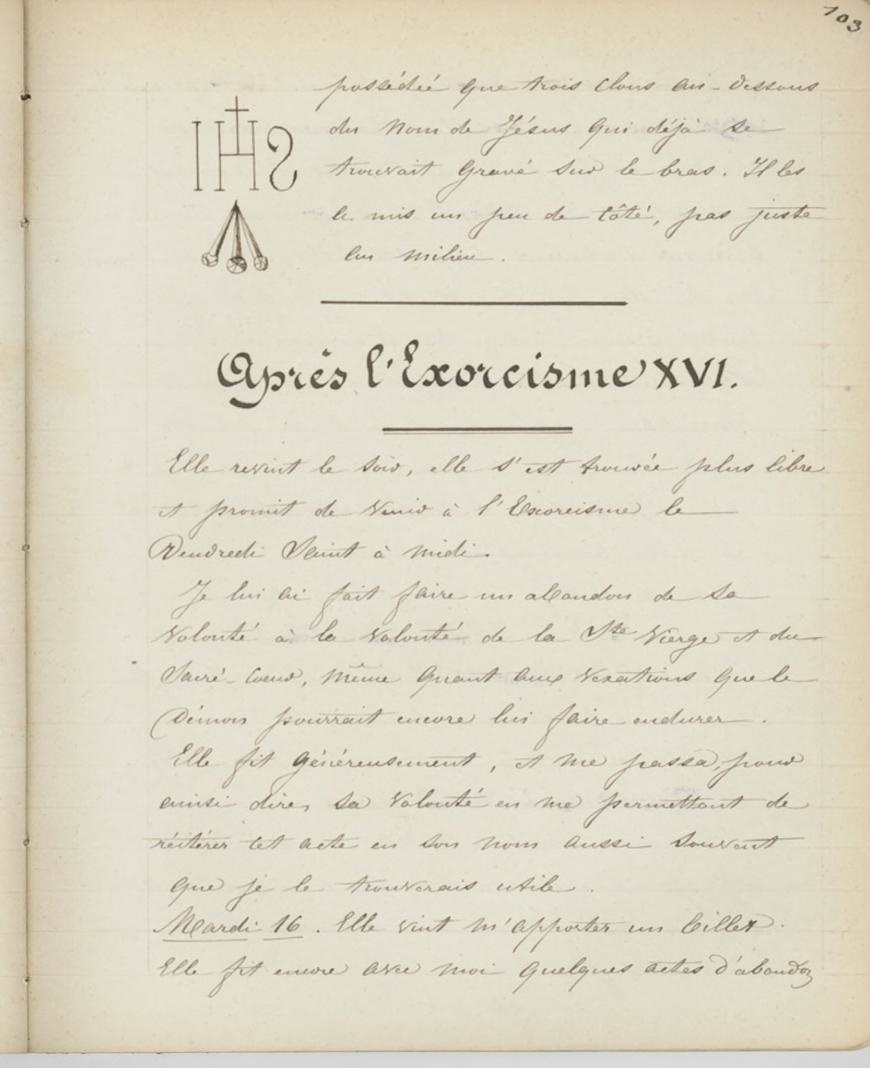 103
possédée que trois clous au-dessous
IHS
du nom de Jésus qui déjà se
trouvait gravé sur le bras. Il les
a mis un peu de côté, pas juste
au milieu.
Après l'Exorcisme XVI.
Elle revint le soir, elle s'est trouvée plus libre
et promit de venir à l'Exorcisme le
Vendredi Saint à midi.
Je lui ai fait faire un abandon de sa
volonté à la volonté de la Ste Vierge et du
Sacré-Coeur, même quant aux vexations que le
Démon pourrait encore lui faire endurer.
Elle fit généreusement, et me passa, pour
ainsi dire, sa volonté en me permettant de
réitérer cet acte en son nom aussi souvent
que je le trouverais utile.
Mardi 16. Elle vint m'apporter un billet.
Elle fit encore avec moi quelques actes d'abandon